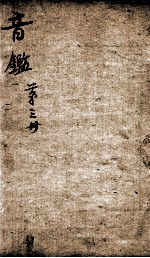 音鑑
第三冊